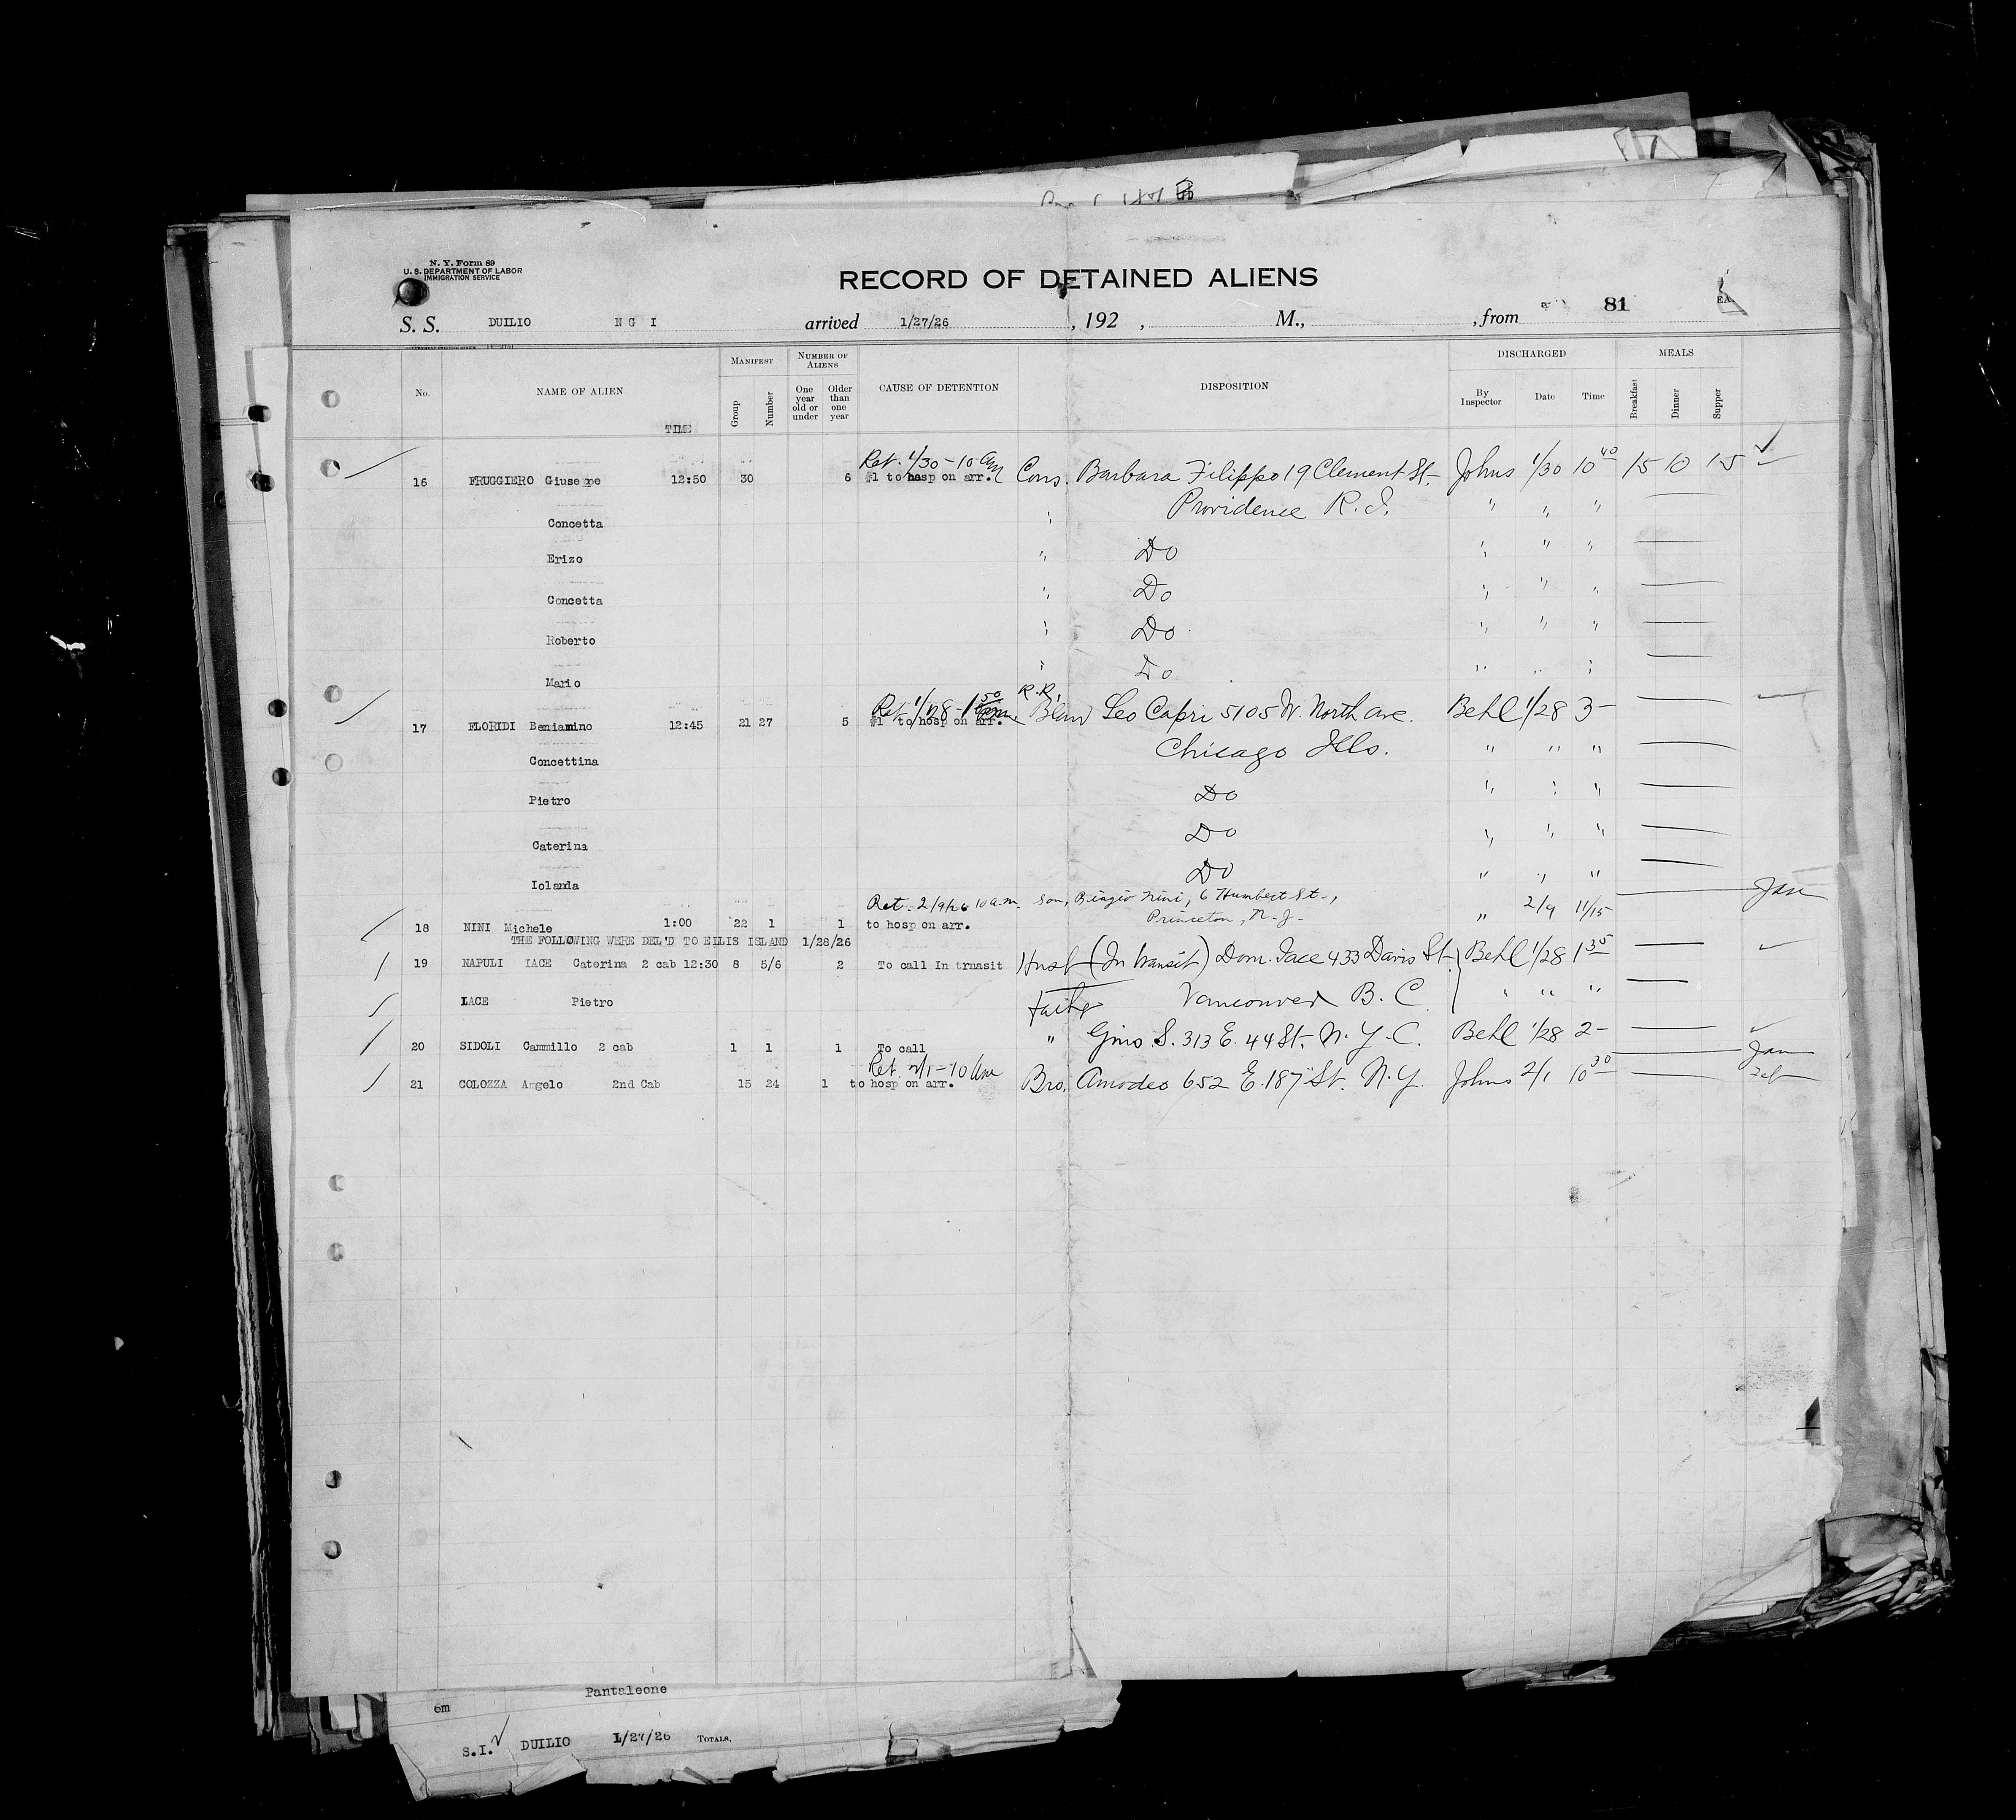 N. Y. Form 89
U. S. DEPARTMENT OF LABOR
IMMIGRATION SERVICE
RECORD OF DETAINED ALIENS
81
S. S. DUILIO N G I arrived 1/27/26, 192 , M., , from
No. NAME OF ALIEN TIME MANIFEST Group Number NUMBER OF ALIENS One year old or under Older than one year CAUSE OF DETENTION DISPOSITION DISCHARGED By Inspector Date Time MEALS Breakfast Dinner Supper
Ret. 1/30 - 10 am
16 FRUGGIERO Giuseppe 12:50 30 6 #1 to hosp on arr. Cons. Barbara Filippo 19 Clement St. Johns 1/30 10 40 15 10 15
Concetta " Providence R. I. " " "
Erizo " Do " " "
Concetta " Do " " "
Roberto " Do " " "
Mario " Do " " "
Ret 1/28 - 1 50 R.R.
17 FLORIDI Beniamino 12:45 21 27 5 #1 to hosp on arr. Leo Capri 5105 W. North ave. Behl 1/28 3-
Concettina Chicago Ills. " " "
Pietro Do " " "
Caterina Do " " "
Iolanda Do " " "
Ret. 2/9/26 10 a.m. son, Biagio Nini, 6 Humbert St.,
18 NINI Michele 1:00 22 1 1 to hosp on arr. Princeton, N. J. " 2/9 11/15 Jan
THE FOLLOWING WERE DEL'D TO ELLIS ISLAND 1/28/26
19 NAPULI IACE Caterina 2 cab 12:30 8 5/6 2 To call In trnasit Husb (In transit) Dom. Iace 433 Davis St. Behl 1/28 1 35
IACE Pietro Father Vancouver B. C. " " "
20 SIDOLI Cammillo 2 cab 1 1 1 To call " Gino S. 313 E. 44 St. N. Y. C. Behl 1/28 2-
Ret. 2/1 - 10 am Jan
21 COLOZZA Angelo 2nd Cab 15 24 1 to hosp on arr. Bro. Amodeo 652 E. 187 St. N. Y. Johns 2/1 10 30 Feb
Pantaleone
6m
S.I. DUILIO 1/27/26 TOTALS,